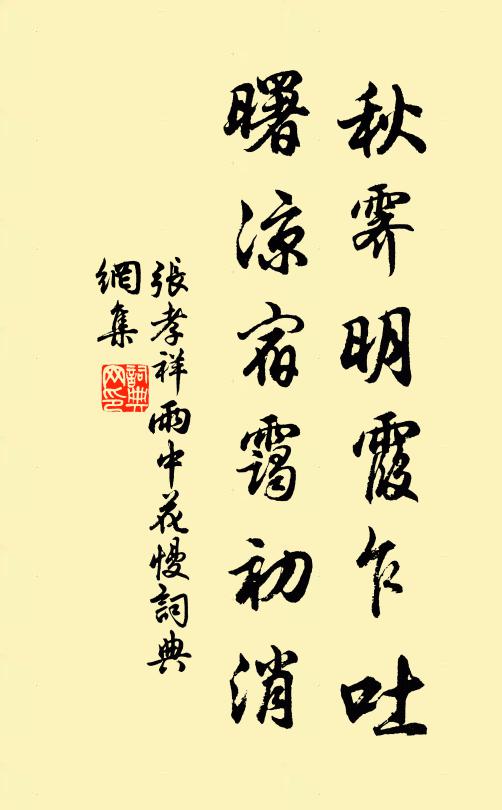 秋霽明霞乍吐
曙涼宿靄初消
張孝祥雨中花慢詞典
網集
詞典網印